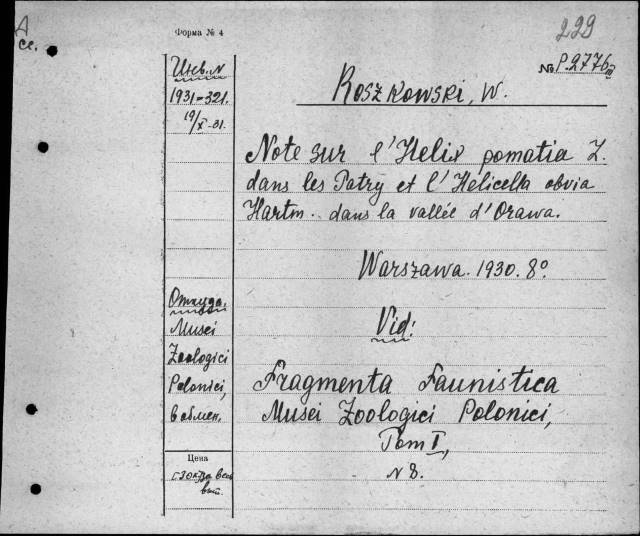 Форма № 4
229
№ P.2776
Инв. N
1931-321.
19/X-31.
Roszkowski, W.
Note sur l'Helix pomatia L.
dans les Tatry et l'Helicella obvia
Hartm. dans la vallée d'Orawa.
Warszawa. 1930. 8º.
Откуда:
Musei
Zoologici
Polonici,
в обмен.
Vid:
Fragmenta Faunistica
Musei Zoologici Polonici,
Tom I,
N 8.
Цена